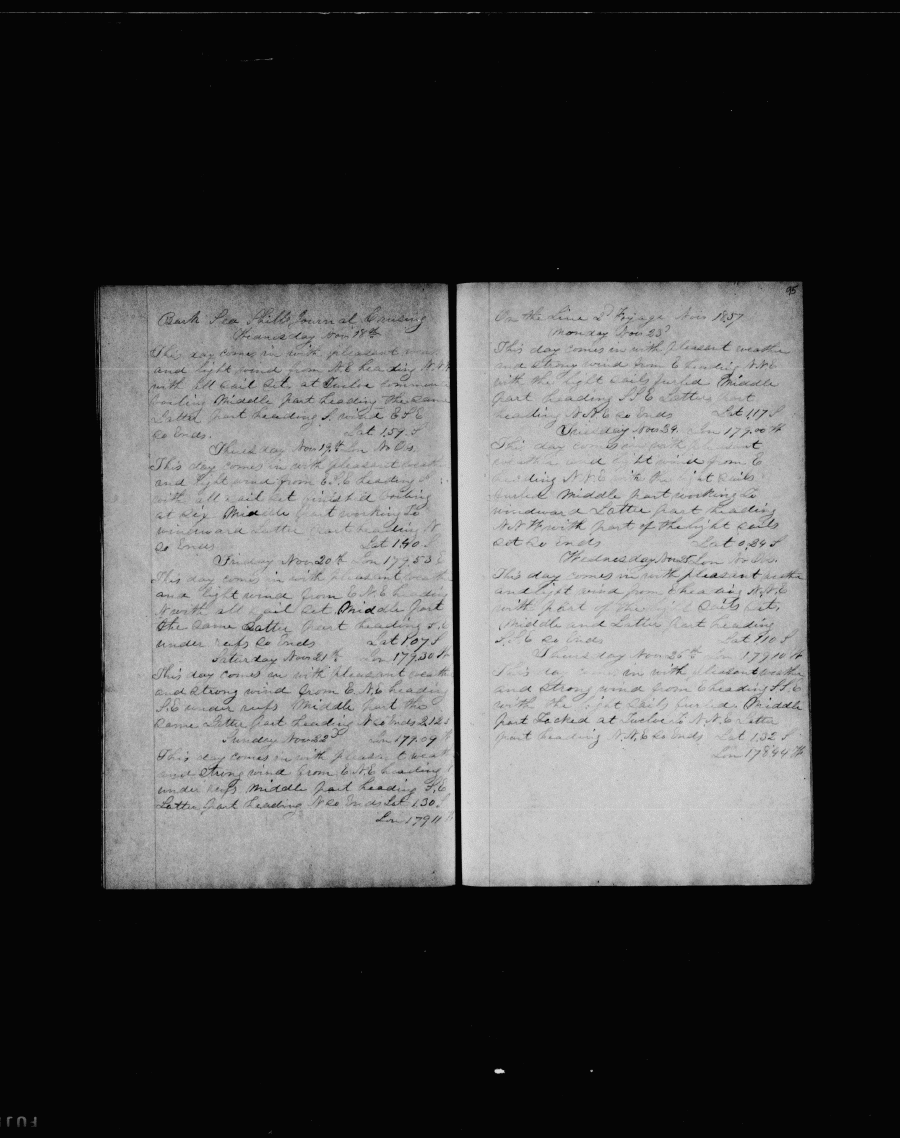 Bark Sea Shells Journal Cruising
Wednesday Nov 18th
This day comes in with pleasant
and light wind from N.E heading N.N.W
with all sail set at Twelve commenced
boiling Middle part heading the same
Latter part heading S. wind E.S.E
So Ends. Lat 1.59. S
Thursday Nov 19th Lon No Obs.
This day comes in with pleasant weathe
and light wind from E.S.E heading S
with all sail set finished boiling
at Six Middle part working To
windward Latter part heading N
So Ends Lat 1.40 S
Friday Nov 20th Lon 179.53 E
This day comes in with pleasant weathe
and light wind from E.N.E heading
N with all sail set Middle part
the same Latter part heading S.E
under reefs So Ends Lat 1.07 S
Saturday Nov 21th Lon 179.30 W
This day comes in with pleasant weath
and strong wind from E.N.E heading
S.E under reefs Middle part the
same Latter part heading N So Ends 2.12 S
Sunday Nov 22d Lon 179.09 W
This day comes in with pleasant weath
and strong wind from E.N.E heading
under reefs Middle part heading S.E
Latter part heading N So Ends Lat 1.30 S
Lon 179 11 W
95
On the Line 2d Voyage Nov 1857
Monday Nov 23d
This day comes in with pleasant weathe
and strong wind from E heading N.N.E
with the light sails furled Middle
part heading S.S.E Latter part
heading N.N.E So Ends Lat 1,17 S
Tuesday Nov 24. Lon 179.00 W
This day comes in with pleasant
weather and light wind from E
heading N.N.E with the light sails
furled Middle part working To
windward Latter part heading
N.N.W with part of the light sails
set So Ends Lat 0,24 S
Wednesday Nov 25 Lon No Obs.
This day comes in with pleasant weathe
and light wind from E heading N.N.E
with part of the light sails set,
Middle and Latter part heading
S.S.E So Ends Lat 1.10 S
Thursday Nov 26th Lon 179.10 W
This day comes in with pleasant weathe
and strong wind from E heading S.S.E
with the light sails furled Middle
part Tacked at Twelve To N.N.E Latter
part heading N.N.E So Ends Lat 1.32 S
Lon 178.44 W